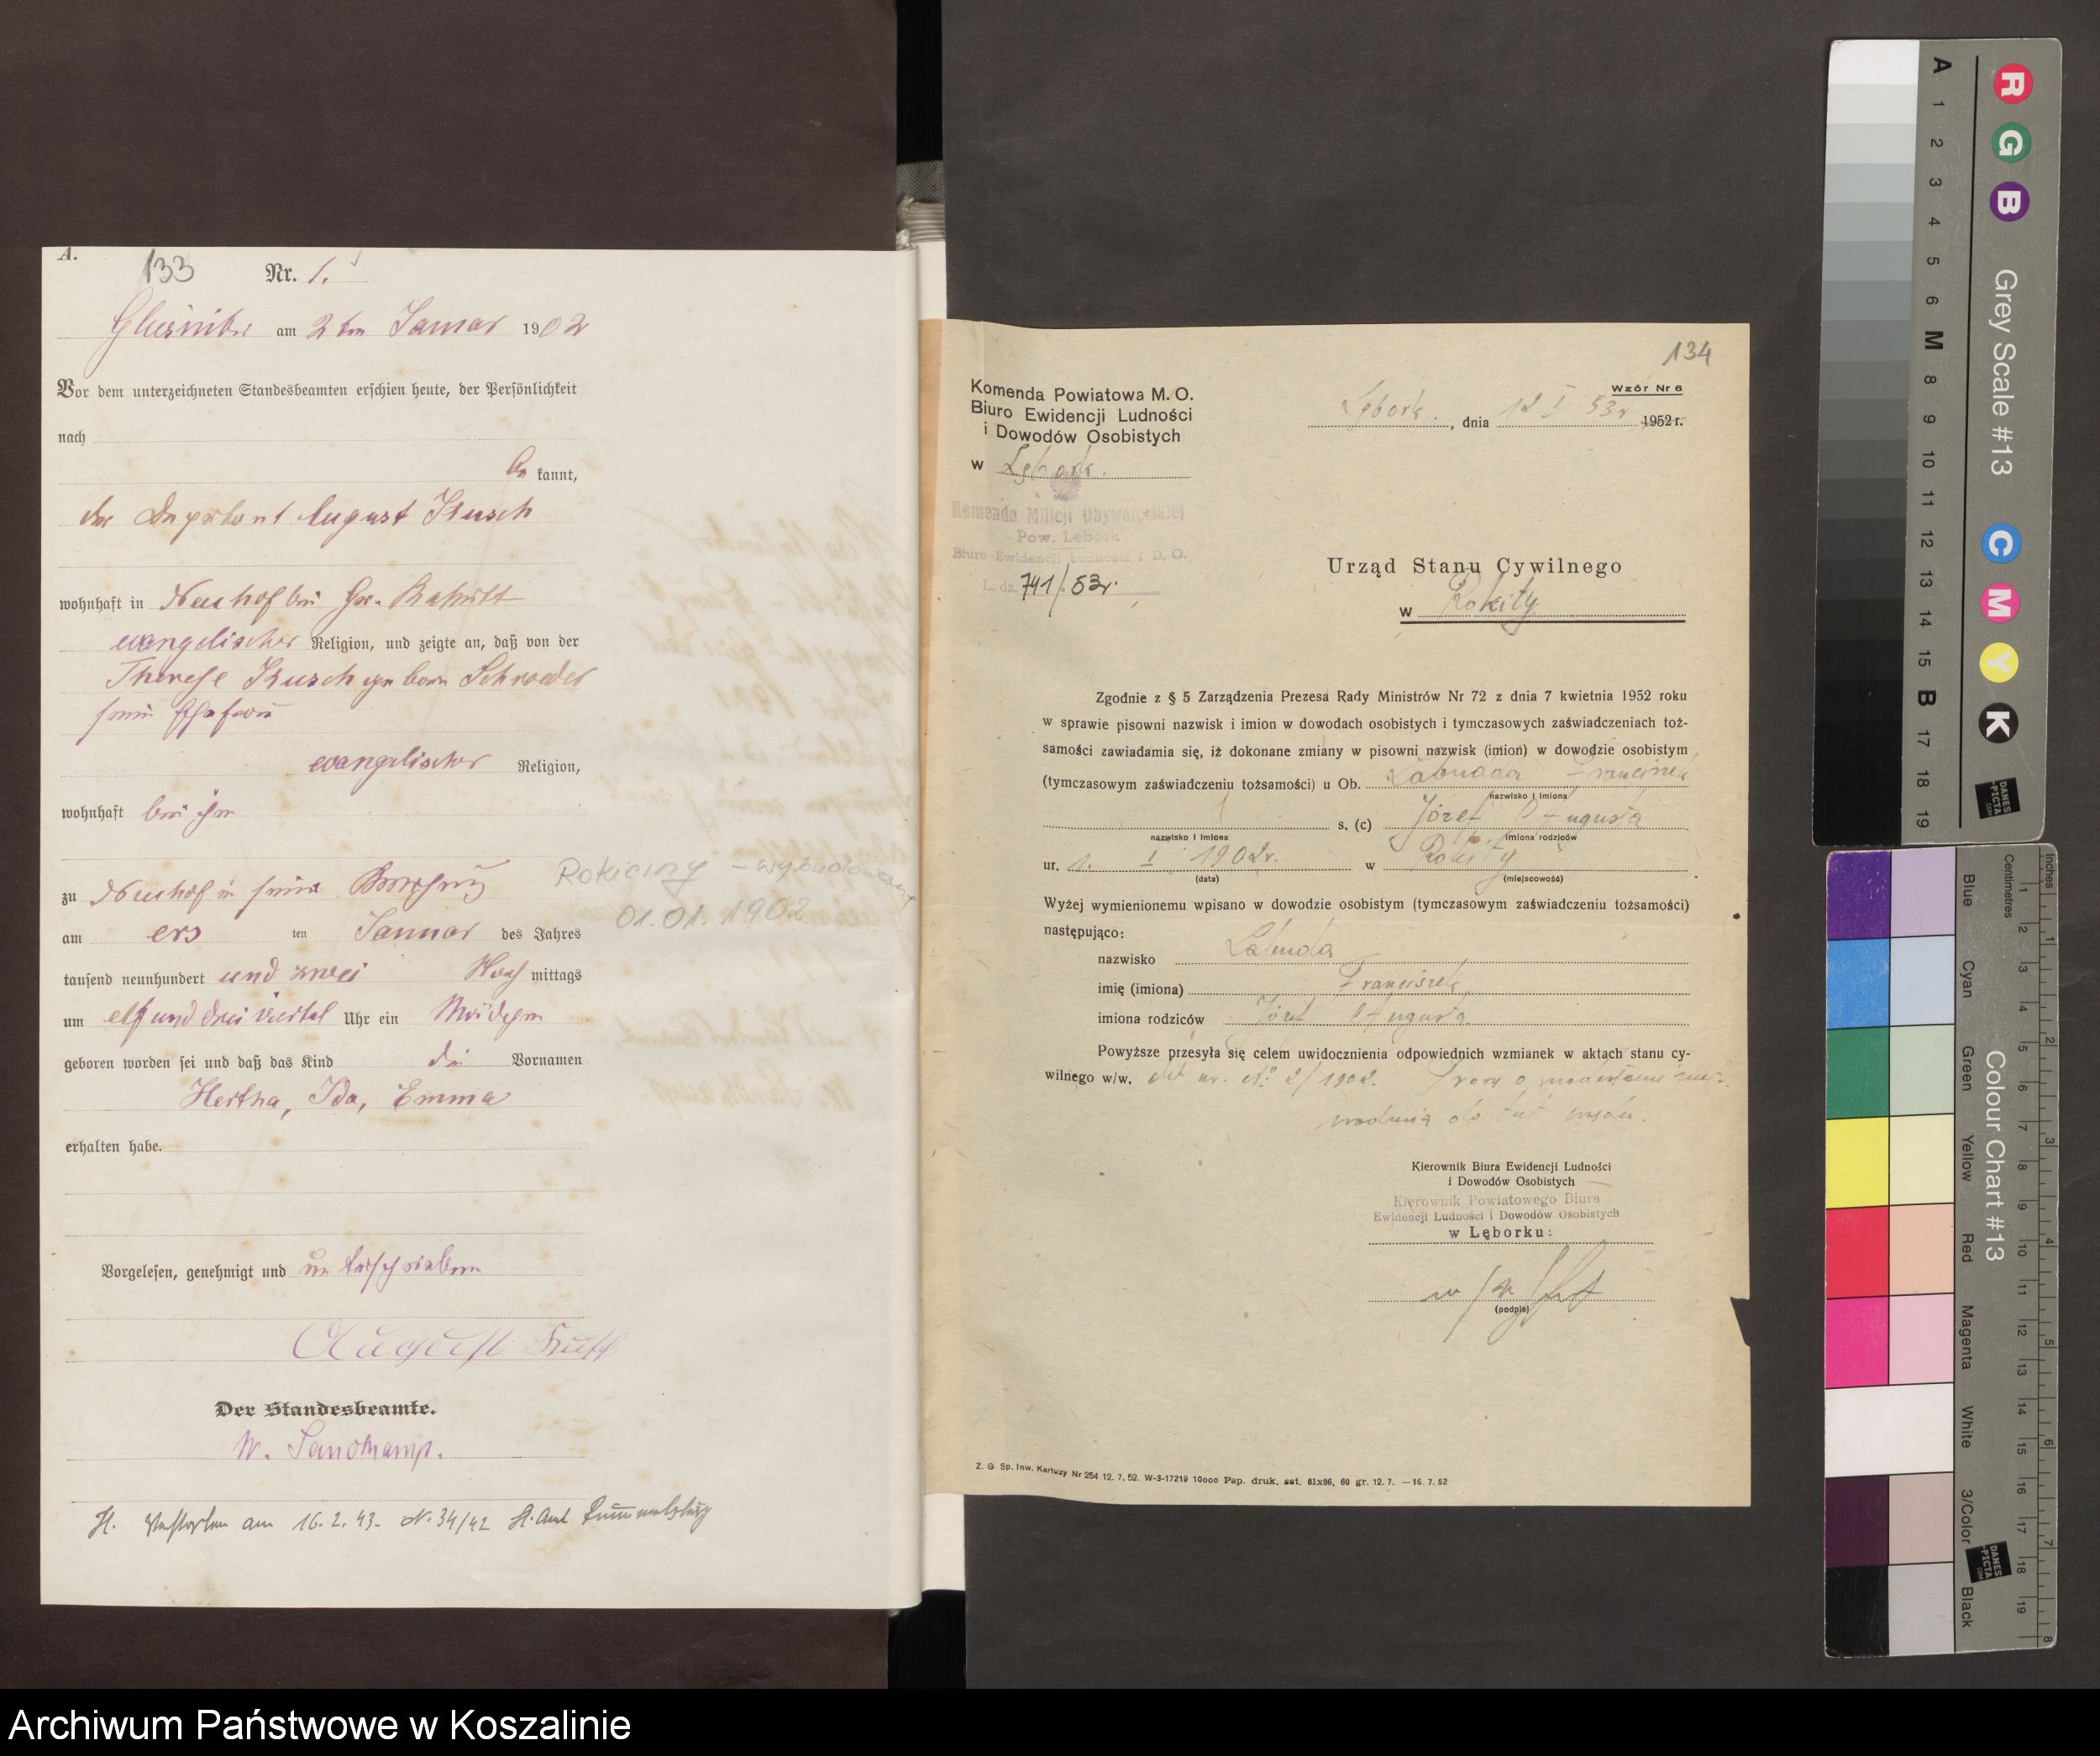 A.
133 Nr. 1.
am 2ten Januar 1902
Vor dem unterzeichneten Standesbeamten erschien heute, der Persönlichkeit
nach
kannt,
der August Kusch
wohnhaft in Neuhof bei Gr. Rakitt
evangelischer Religion, und zeigte an, daß von der
Therese Kusch geborn Schroeder
seine Ehefrau
evangelischer Religion,
wohnhaft bei ihm
zu Neuhof in seine Behausung
am ers ten Januar des Jahres
tausend neunhundert und zwei mittags
um elf und drei viertel Uhr ein Mädchen
geboren worden sei und daß das Kind die Vornamen
Hertha, Ida, Emma
erhalten habe.
Vorgelesen, genehmigt und unterschrieben
August Kusch
Der Standesbeamte.
W. Sandkamp.
H. Verstorben am 16.2.43. N. 34/42 St. Amt Rummelsburg
Rokiciny – wybudowanie
01.01.1902
134
Wzór Nr 6
Komenda Powiatowa M. O.
Biuro Ewidencji Ludności
i Dowodów Osobistych
w Lębork.
Lębork., dnia 12 I 53 r 1952 r.
Komenda Milicji Obywatelskiej
Pow. Lębork
Biuro Ewidencji Ludności i D. O.
L. dz. 741/53r.
Urząd Stanu Cywilnego
w Rokity
Zgodnie z § 5 Zarządzenia Prezesa Rady Ministrów Nr 72 z dnia 7 kwietnia 1952 roku
w sprawie pisowni nazwisk i imion w dowodach osobistych i tymczasowych zaświadczeniach toż-
samości zawiadamia się, iż dokonane zmiany w pisowni nazwisk (imion) w dowodzie osobistym
(tymczasowym zaświadczeniu tożsamości) u Ob. Labudda Franciszek
nazwisko i imiona
s. (c) Józef Augusta
nazwisko i imiona imiona rodziców
ur. 1. I 1902r. w Rokity
(data) (miejscowość)
Wyżej wymienionemu wpisano w dowodzie osobistym (tymczasowym zaświadczeniu tożsamości)
następująco:
nazwisko Labuda
imię (imiona) Franciszek
imiona rodziców Józef Augusta
Powyższe przesyła się celem uwidocznienia odpowiednich wzmianek w aktach stanu cy-
wilnego w/w. akt ur. Nr 2/1902.
Kierownik Biura Ewidencji Ludności
i Dowodów Osobistych
Kierownik Powiatowego Biura
Ewidencji Ludności i Dowodów Osobistych
w Lęborku:
(podpis)
Z. G Sp. Inw. Kartuzy Nr 254 12. 7. 52. W-3-17219 10000 Pap. druk. sat. 61x86, 60 gr. 12. 7. — 16. 7. 52
R G B Grey Scale #13 C M Y K
A 1 2 3 4 5 6 M 8 9 10 11 12 13 14 15 B 17 18 19
DANES
-PICTA
.COM
Colour Chart #13
Blue Cyan Green Yellow Red Magenta White 3/Color Black
Centimetres 1 2 3 4 5 6 7 8 9 10 11 12 13 14 15 16 17 18 19
Inches 1 2 3 4 5 6 7 8
DANES
-PICTA
.COM
Archiwum Państwowe w Koszalinie